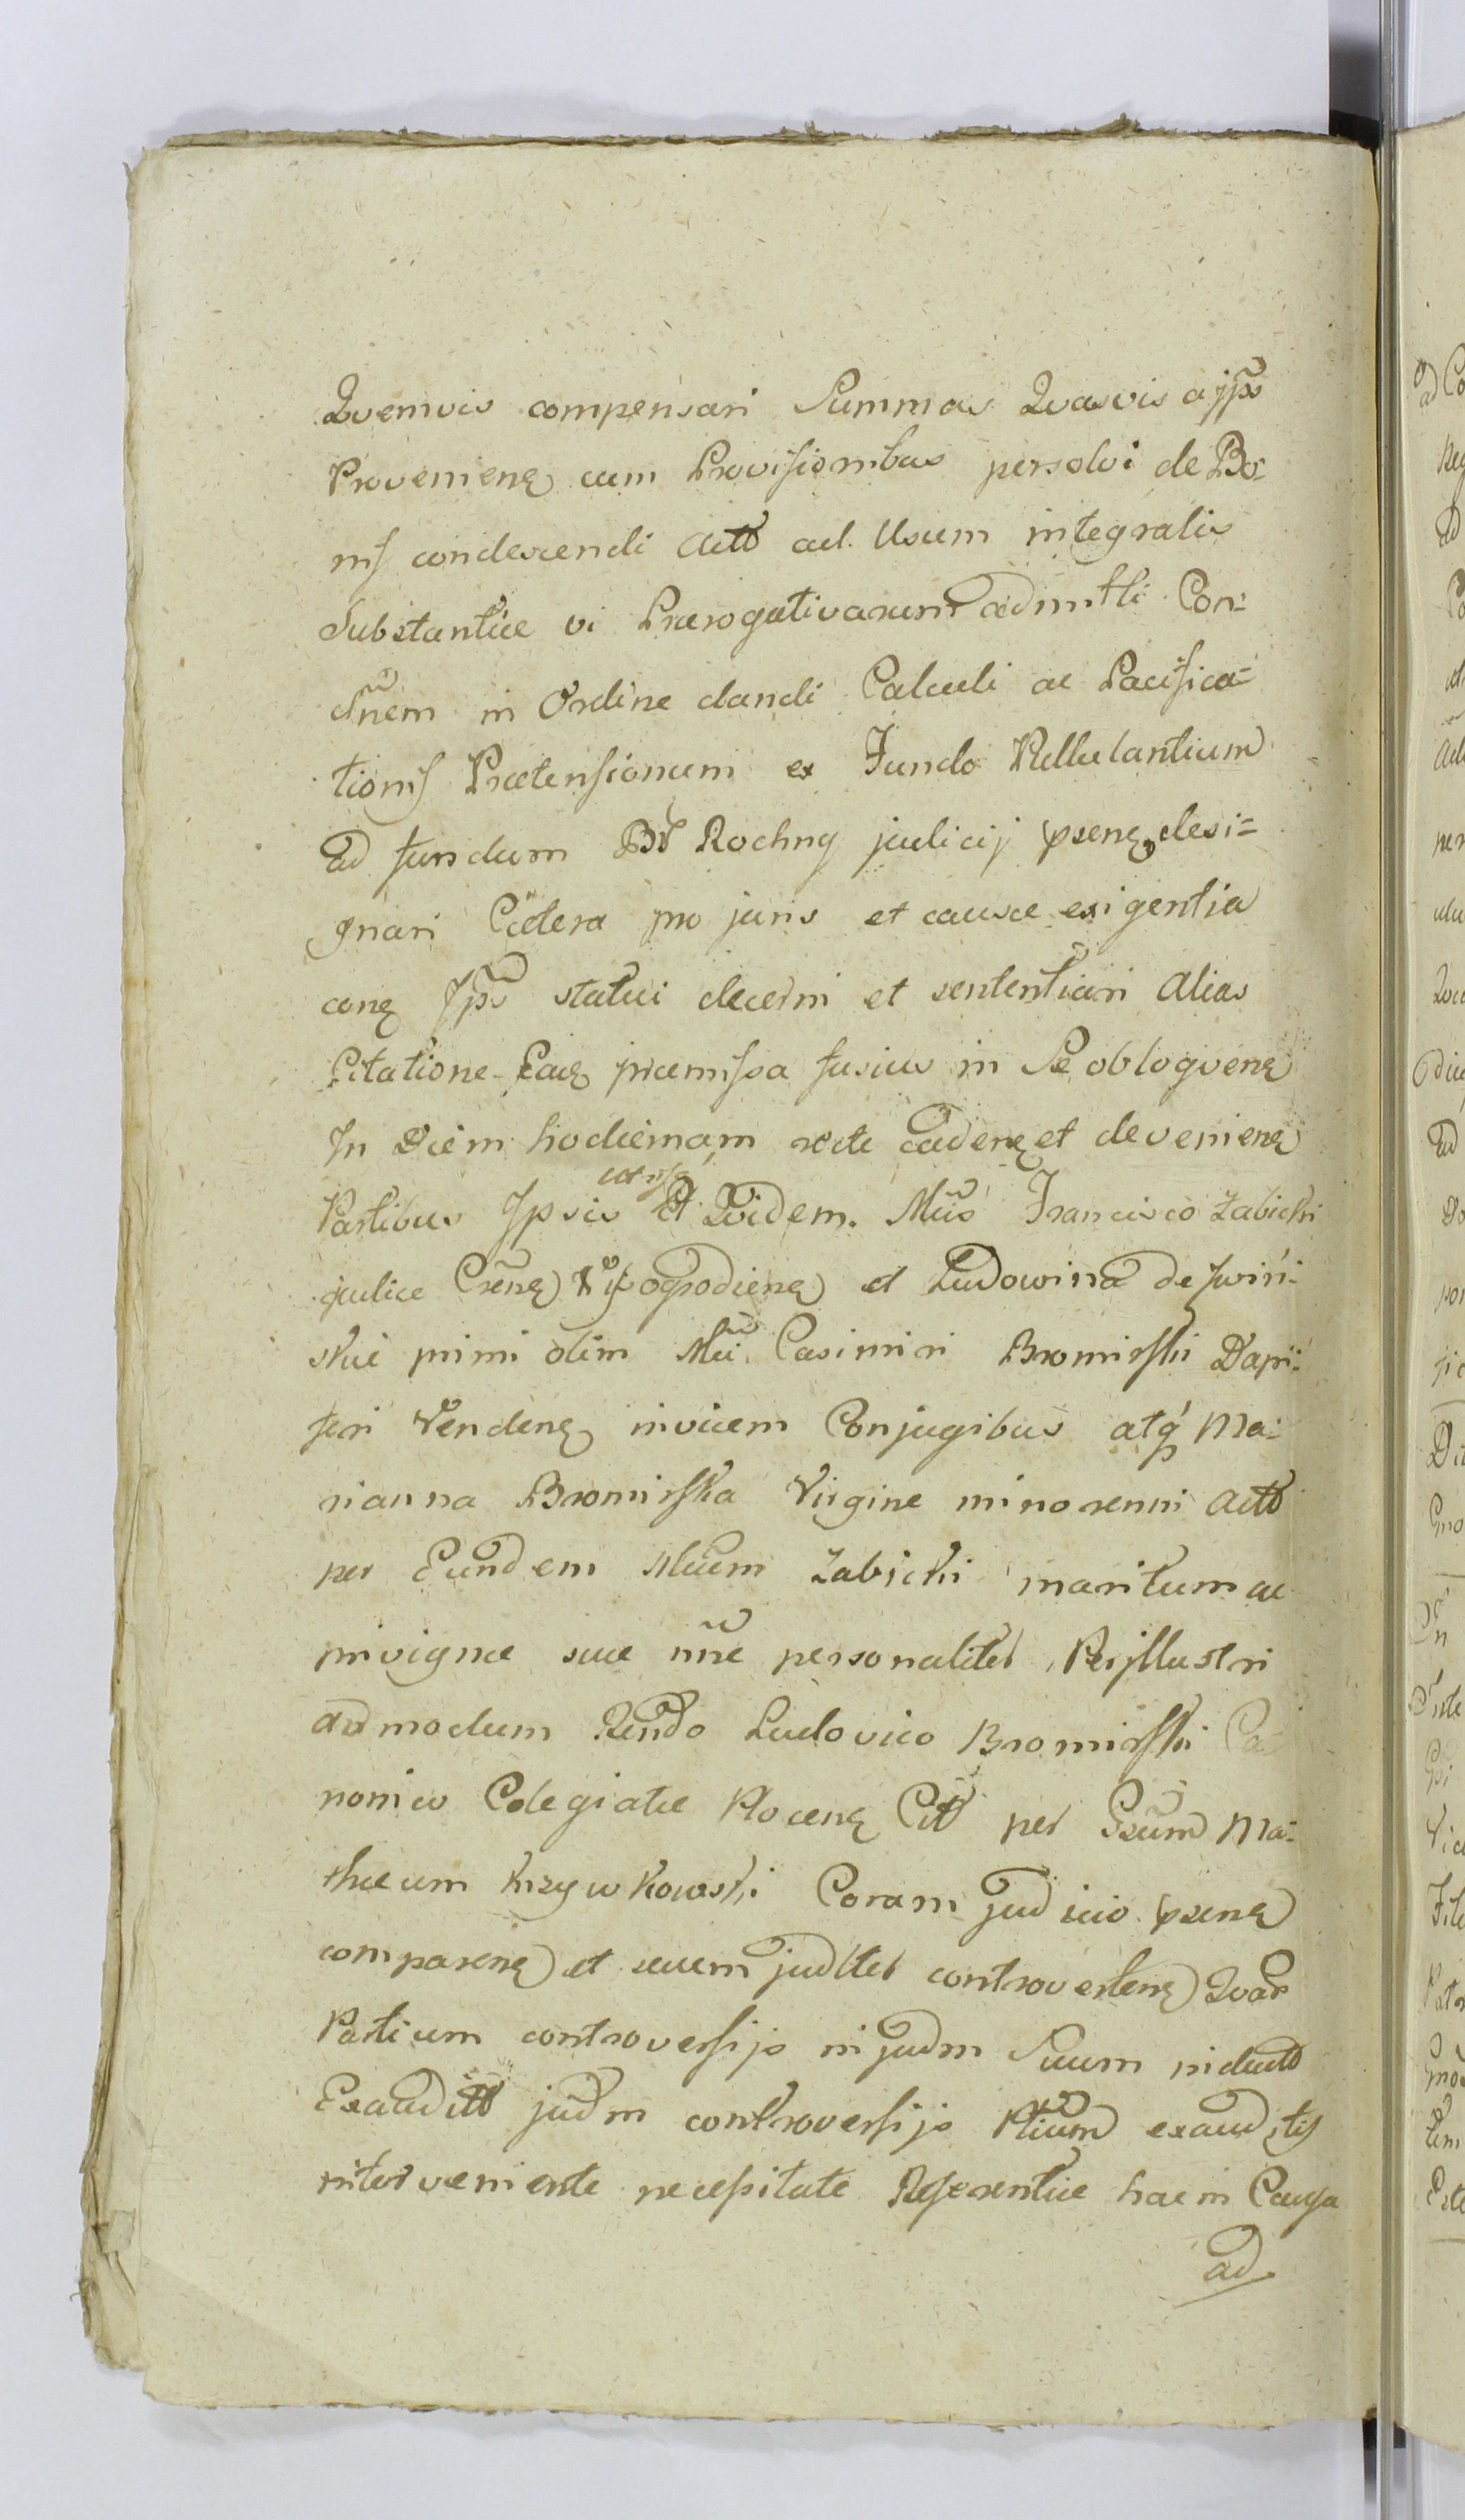 Qvemvis compensari Summas Qvasvis a jps̃
Provenienꝫ cum Provisionibus persolvi de Bo-
nis condescendi actt̃ ad Usum integralis
Substantiæ vi Prærogativarum admitti Con-
dñem in Ordine dandi Calculi ac Pacifica-
tionis Prætensionum ex Fundo Pullulantium
ad fundum Bõr Rochny judicij pseñꝫ desi-
gnari Cætera pro juris et causæ exigentia
conꝫ Jps̃ statui decerni et sententiari alias
Citatione Eaꝫ præmissa fusius in Se obloqvenꝫ
In Diem hodiernam recte cadenꝫ et devenienꝫ
Partibus Ipsis utrisqꝫ Et Qvidem. Mĩis Francisco Zabicki
judice Cseñꝫ Wyszogrodienꝫ et Ludowina de Swiń-
skie primi olim Mĩi Casimiri Bromirski Dapi-
feri Vendenꝫ invicem Conjugibus atq́ Ma-
rianna Bromirska Virgine minorenni actt̃
per Eundem Mĩcum Zabicki maritum ac
privignæ suæ nñe personaliter Perjllustri
admodum Rendo Ludovico Bromirski Ca
nonico Colegiatæ Plocenꝫ Citt̃ per Gseũm Ma-
thæum Krzywkowski Coram judicio pseñꝫ
comparenꝫ et secum judlter controvertenꝫ Qvar
Partium controversijs in judm Suum inductt̃
Exauditt̃ judm controversijs Ptium exauditis
interveniente necessitate Referentiæ hac in Causa
ad